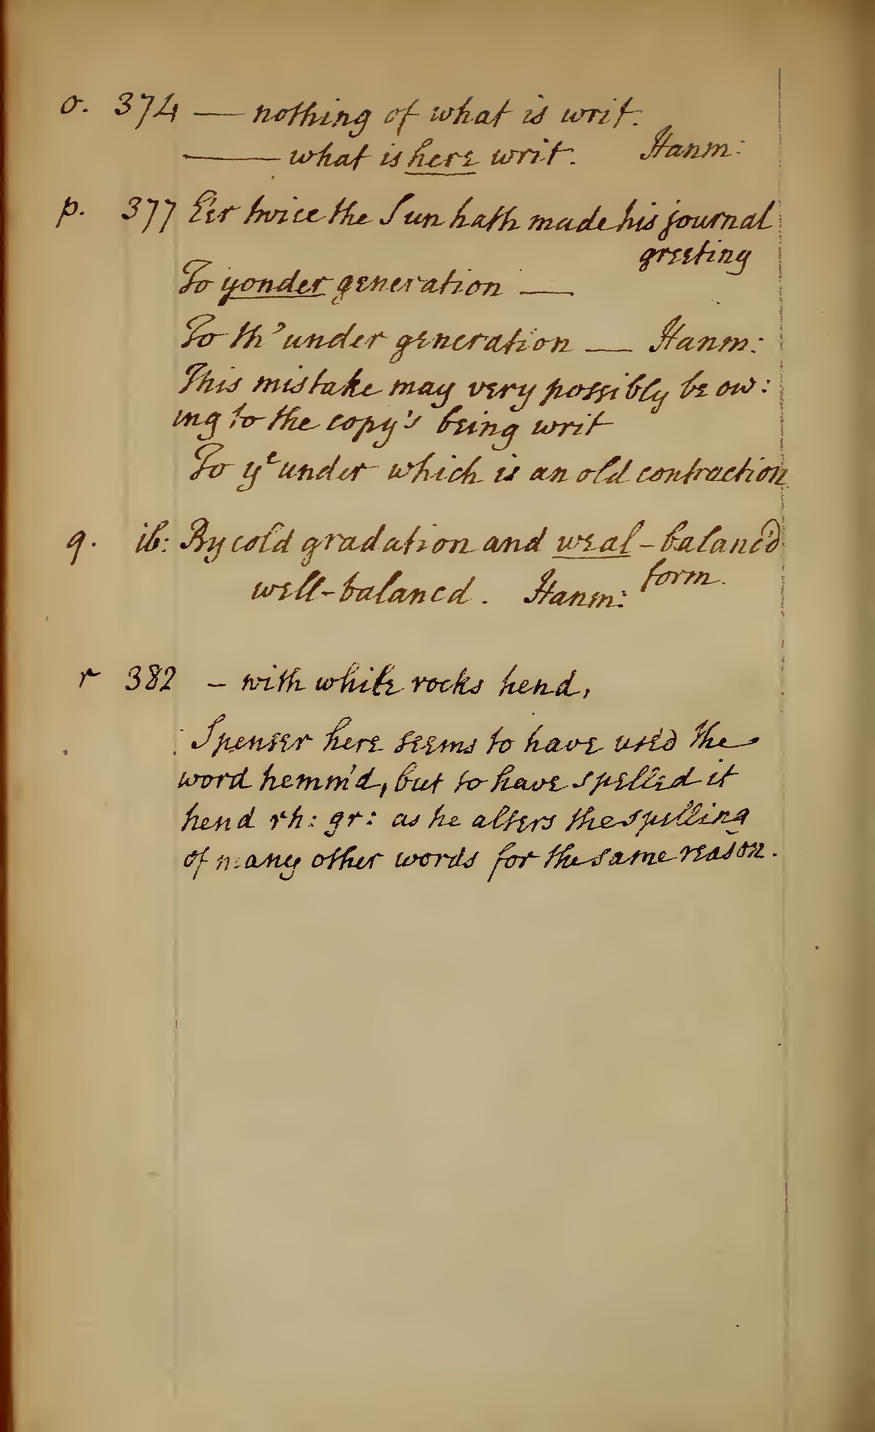 o. 374 — nothing of what is writ.
— what is here writ. Hanm:
p. 377 E'er twice the Sun hath made his journal
greeting
To yonder generation —
To th' under generation — Hanm:
This mistake may very possibly be ow:
ing to the copy's being writ
To yᵉ under which is an old contraction
q. ib: By cold gradation and weal-balanc'd
form.
well-balancd. Hanm:
r 382 – with white rocks hend,
Spenser here seems to have us'd the
word hemm'd, but to have spelled it
hend rh: gr: as he alters the spelling
of many other words for the same reason.